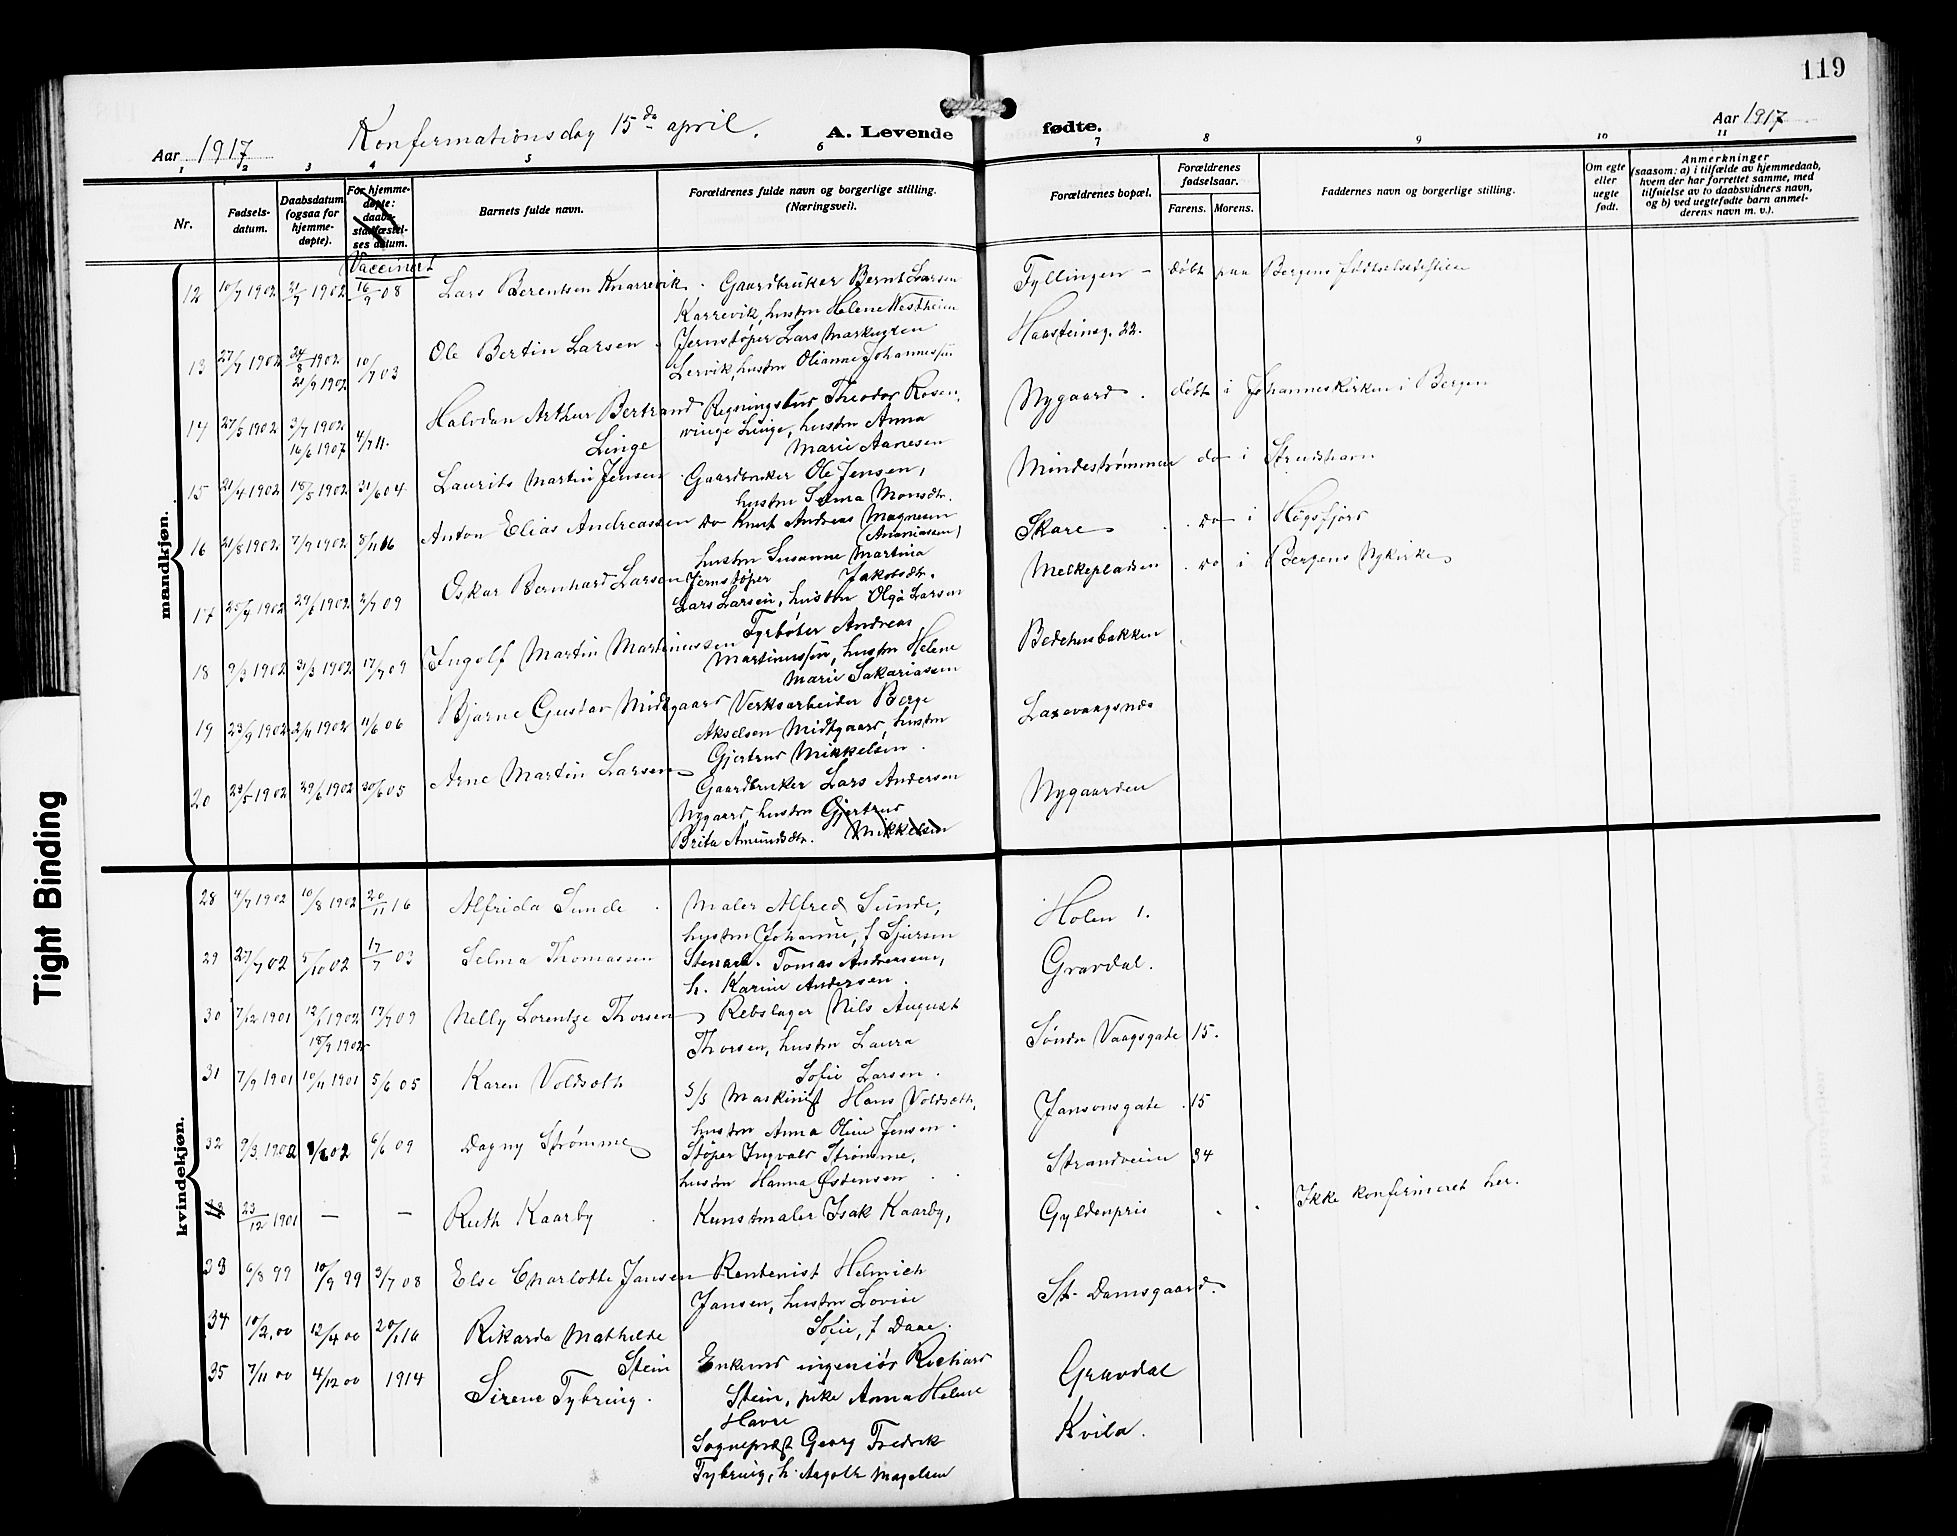 119
Aar 1917
Konfermationsdag 15de april.
A. Levende
fødte.
Aar 1917
1 2 3 4 5 6 7 8 9 10 11
Nr.
Fødsels-
datum.
Daabsdatum
(ogsaa for
hjemme-
døpte).
For hjemme-
døpte:
daabs-
stadfæstel-
ses datum.
Vaccinert
Barnets fulde navn.
Forældrenes fulde navn og borgerlige stilling.
(Næringsvei).
Forældrenes bopæl.
Forældrenes
fødselsaar.
Farens. Morens.
Faddernes navn og borgerlige stilling.
Om egte
eller
uegte
født.
Anmerkninger
(saasom: a) i tilfælde av hjemmedaab,
hvem der har forrettet samme, med
tilføielse av to daabsvidners navn,
og b) ved uegtefødte barn anmel-
derens navn m. v.).
mandkjøn.
12 10/7 1902 31/7 1902 16/9 08 Lars Berentsen Knarrevik. Gaardbruker Bernt Larsen Fyllingen – døbt paa Bergens fødselsstiftelse
Karrevik, hustru Helene Westheim
13 27/7 1902 24/8 1902 10/7 03 Ole Bertin Larsen. Jernstøper Lars Markussen Haasteinsg. 22.
21/9 1902 Lervik, hustru Olianne Johannessen
14 27/5 1902 3/7 1902 4/7 11. Halvdan Arthur Bertrand Regningsfør Theodor Rosen- Nygaard. døbt i Johanneskirken i Bergen
16/6 1907 Linge vinge Linge, hustru Anna
Marie Aanesen
15 21/4 1902 18/5 1902 31/6 04 Laurits Martin Jensen. Gaardbruker Ole Jensen, Mindestrømmen do i Strudshavn
hustru Selma Monsdtr.
16 21/8 1902 7/9 1902 8/11 16 Anton Elias Andreassen do Knut Andreas Magnesen Skare . do i Høgsfjord
(Ananiassen)
hustru Susanne Martina
Jakobsdtr.
17 25/4 1902 29/6 1902 2/7 09 Oskar Bernhard Larsen Jernstøper Melkepladsen . do i Bergens Nykirke
Lars Larsen, hustru Olga Larsen
18 9/3 1902 31/3 1902 17/7 09 Ingolf Martin Martinussen Fyrbøter Andreas Bedehusbakken
Martinussen, hustru Helene
Marie Sakariassen
19 23/9 1902 2/11 1902 11/6 06 Bjarne Gustav Midtgaard Verksarbeider Berge Laxevaagsnes
Akselsen Midtgaard, hustru
Gjertrud Mikkelsen.
20 23/5 1902 29/6 1902 30/6 05 Arne Martin Larsen Gaardbruker Lars Andersen Nygaarden
Nygaard, hustru Gjertrud
Brita Amundsdtr. Mikkelsen
kvindekjøn.
28 4/7 1902 10/8 1902 20/11 16 Alfrida Sunde . Maler Alfred Sunde, Holen 1.
hustru Johanne, f Sjursen
29 27/7 02 5/10 02 17/7 03 Selma Thomassen Stenarb. Tomas Andreassen, Gravdal.
h. Karine Andersen.
30 7/12 1901 12/1 1902 17/7 09 Nelly Lorentze Thorsen Rebslager Nils August Søndre Vaagsgate 15.
18/9 1902 Thorsen, hustru Laura
Sofie Larsen.
31 7/9 1901 10/11 1901 5/6 05 Karen Voldseth S/S Maskinist Hans Voldseth, Jansonsgate. 15
hustru Anna Oline Jensen.
32 9/3 1902 1/6 02 6/6 09 Dagny Strømme Støper Ingvald Strømme, Strandveien 34
hustru Hanna Østensen
23/12 1901 — — Ruth Kaarby . Kunstmaler Isak Kaarby, Gyldenpris Ikke konfermeret her.
33 6/8 99 10/9 99 3/7 08 Else Charlotte Jansen Rentenist Helmich St. Damsgaard.
Jansen, hustru Lovise
Sofie, f Daae.
34 10/2 00 12/4 00 20/1 16 Rikarda Mathilde Enkemd ingeniør Richard Gravdal
Stein Stein, pike Anna Helene
Havre
35 7/11 00 4/12 00 1914 Sirene Tybring. Sogneprest Georg Fredrik Kvila.
Tybring, h. Aagot Magelsen
Tight Binding